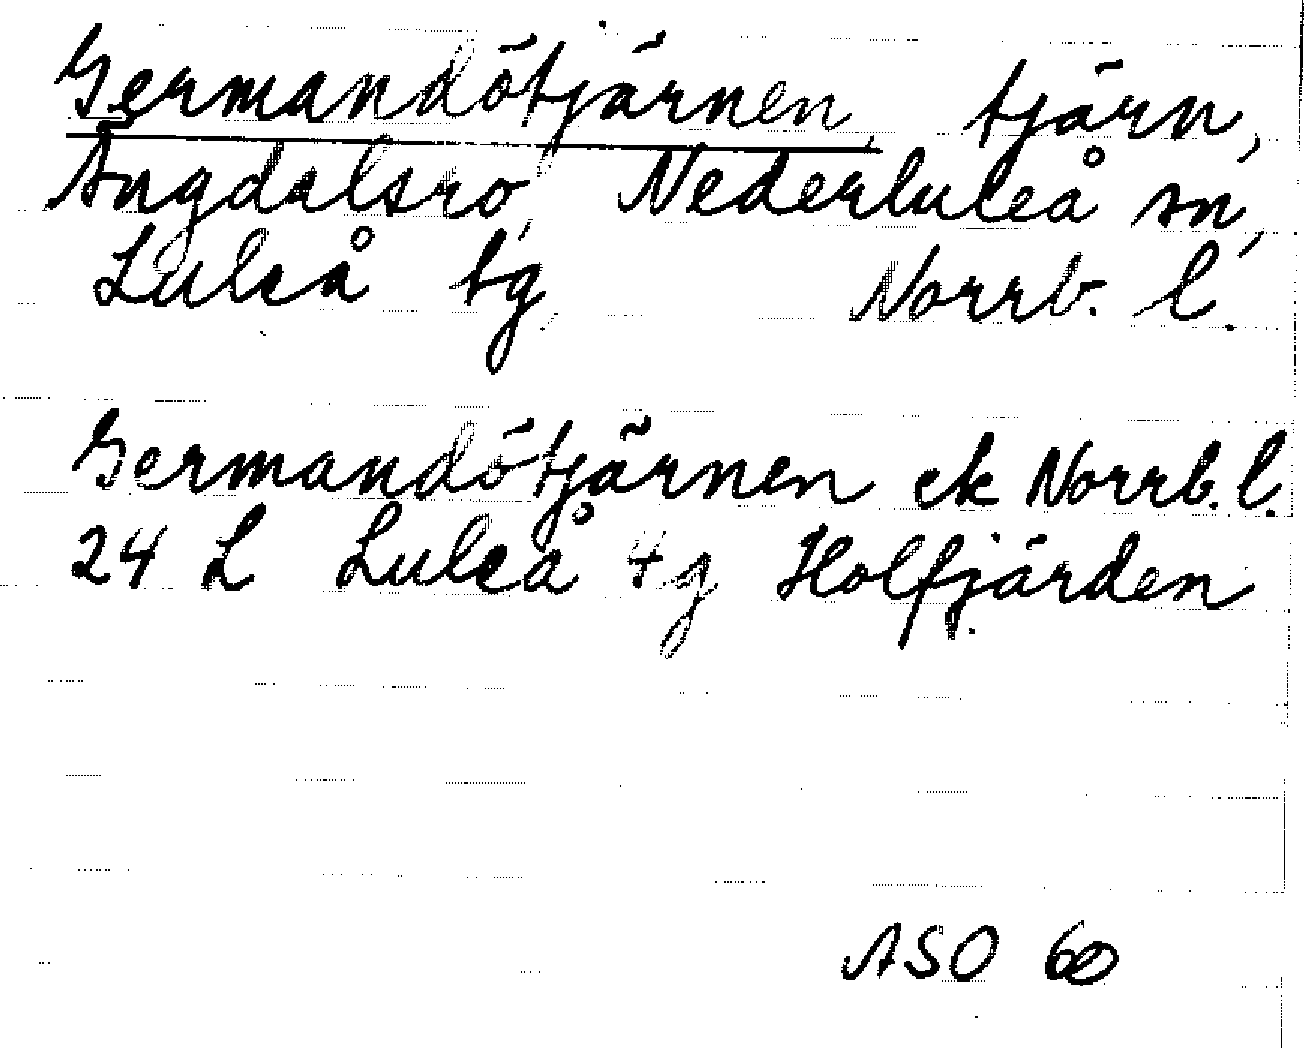 Germandötjärnen, tjärn,
Ängdalsro, Nederluleå sn,
Luleå tg, Norrb. l.
Germandötjärnen ek Norrb. l.
24 L Luleå tg Holfjärden
ASO 60